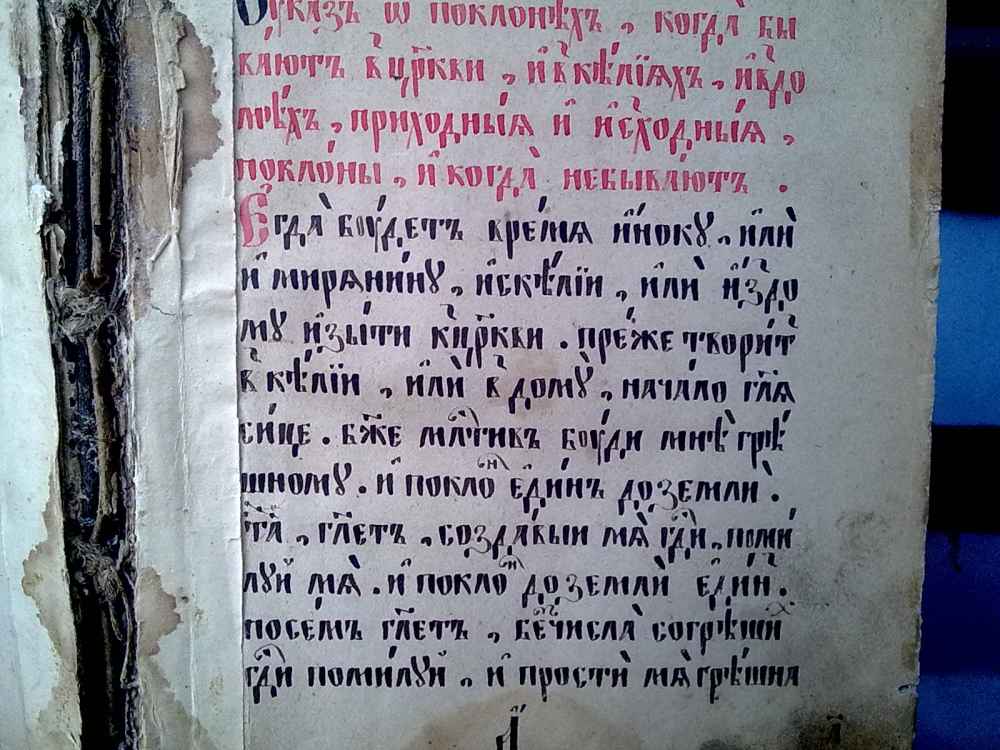 Оуказъ ѿ поклонѣхъ, когда̀ бы
ва́ютъ в҆цр҃кви, и҆ в҆ке́лїѧхъ, и҆ в҆до
мѣ́хъ, приходны́ѧ и҆ и҆схо́дныѧ,
покло́ны, и҆ когда̀ небыва́ютъ.
Е҆гда̀ бꙋ́детъ вре́мѧ и҆́нокꙋ, и҆лѝ
и҆ мирѧни́нꙋ, и҆скѣ́лїи, и҆лѝ и҆здо
мꙋ и҆зы́ти к҆цр҃кви. пре́же твори́т
в҆ кѣ́лїи, и҆лѝ в҆ домꙋ̀, нача́ло гл҃ѧ
си́це. бж҃е мл҇тивъ бꙋ́ди мнѣ̀ грѣ́
шномꙋ. и҆ покло́н є҆ди́нъ доземлѝ.
та́ , гл҃етъ, созда́выи мѧ̀ гд҇и, поми́
лꙋй мѧ̀. и҆ покло́н доземлѝ є҆ди́н.
посе́мъ гл҃етъ, бе́числа̀ согрѣши́х
гд҇и поми́лꙋй, и҆ простѝ мѧ̀ грѣ́шна